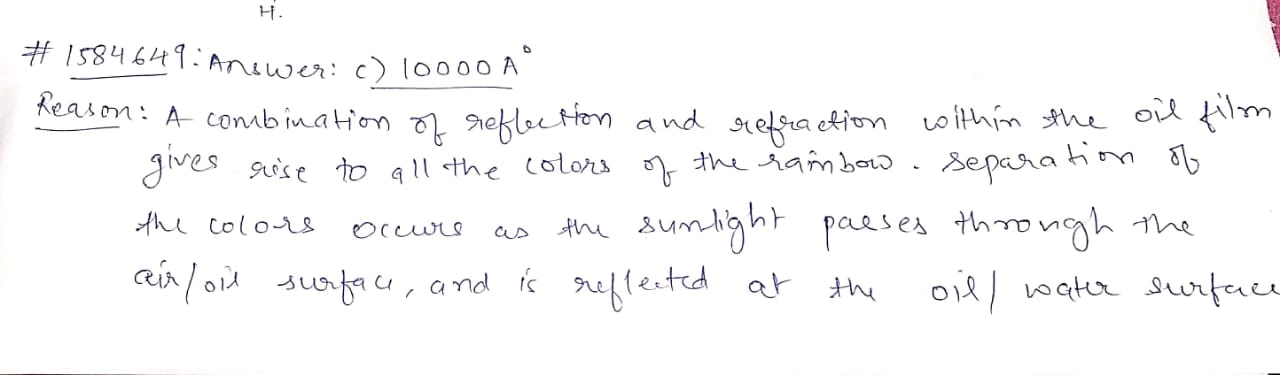 H.
# 1584649: Answer: c) 10000 A°
Reason: A combination of reflection and refraction within the oil film
gives rise to all the colors of the rainbow. Separation of
the colors occurs as the sunlight passes through the
air/oil surface, and is reflected at the oil/ water surface